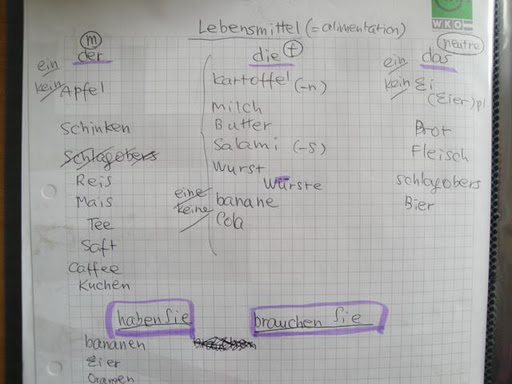 Lebensmittel (= alimentation)
WKO
m
der
ein
kein
Apfel
Schinken
Schlagobers
Reis
Mais
Tee
Saft
Caffee
Kuchen
f
die
Kartoffel (-n)
Milch
Butter
Salami (-s)
Wurst
Würste
eine
keine
banane
Cola
neutre
das
ein
kein
Ei
(Eier) pl
Brot
Fleisch
schlagobers
Bier
haben Sie
brauchen Sie
bananen
Eier